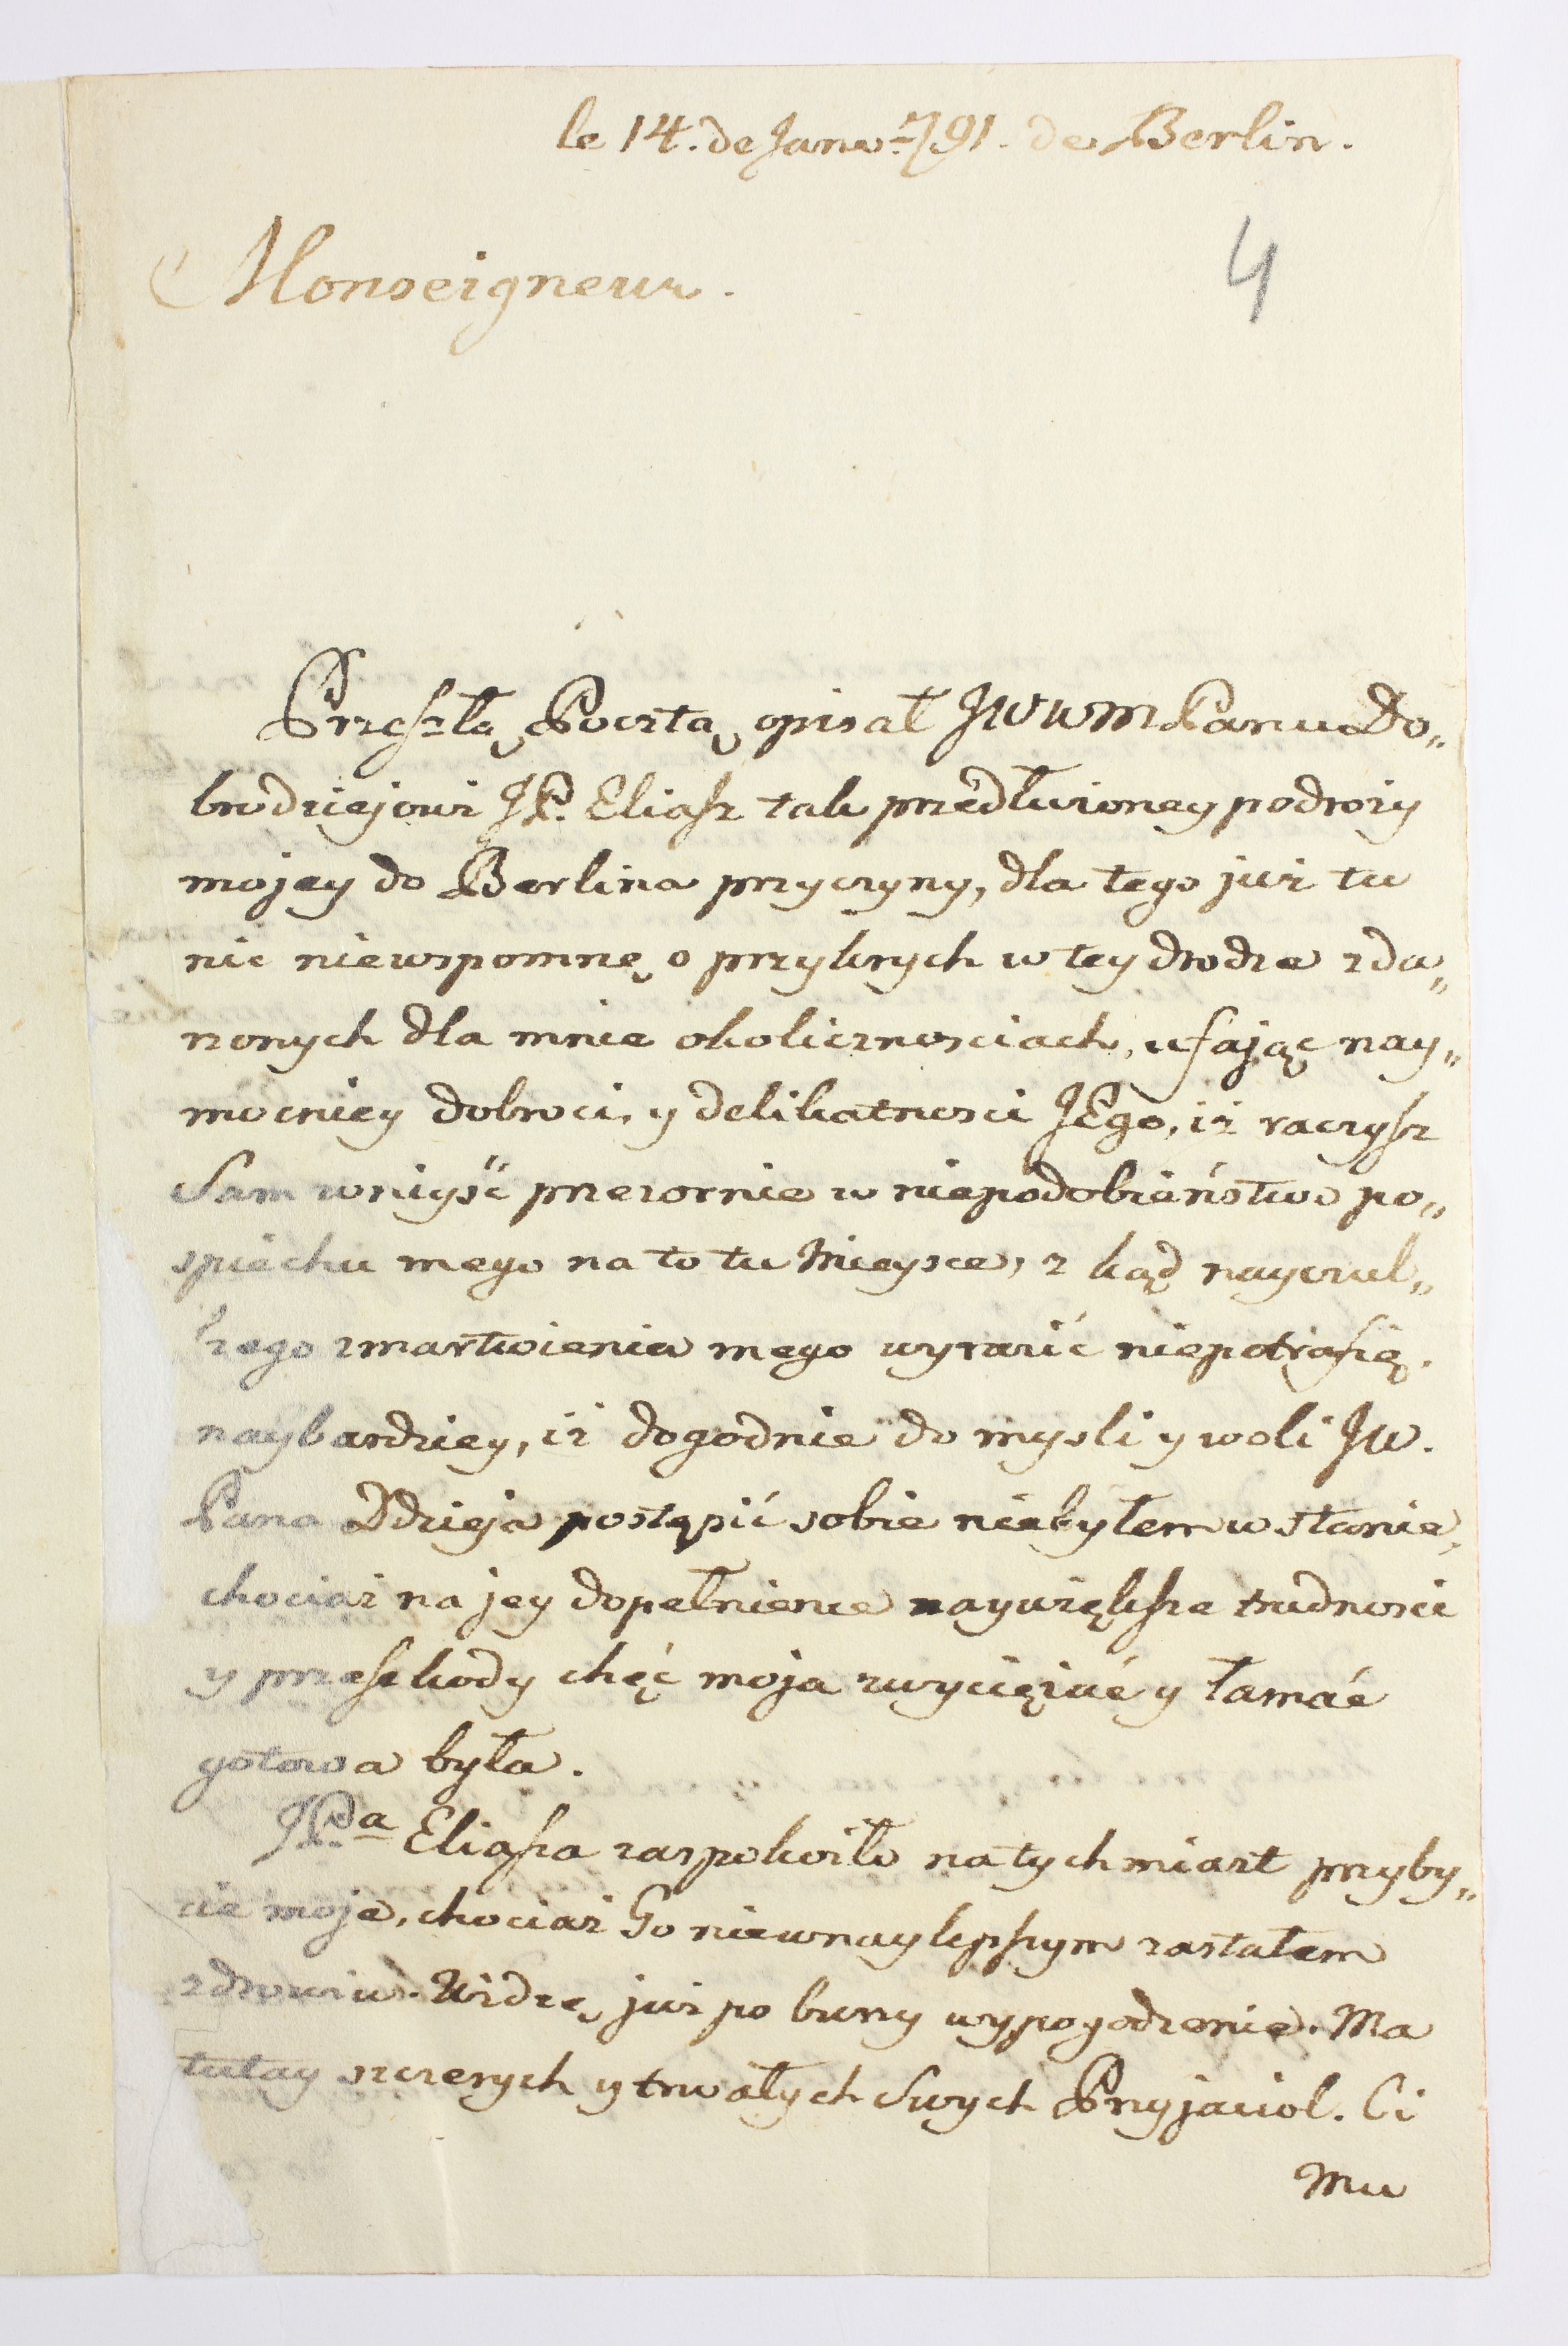 le 14. de Janv: 791. de Berlin.
Monseigneur.
4
Przeszłą Pocztą opisał JWWM Panu Do„
brodziejowi JP. Eliasz tak przedłużoney podroży
mojey do Berlina przyczyny, dla tego już tu
nic niewspomnę o przykrych w tey drodze zda„
rzonych dla mnie okolicznosciach, ufając nay„
mocniey dobroci y delikatnosci JEgo, iż raczysz
Sam wniyść przezornie w niepodobiaństwo po„
spiechu mego na to tu Mieysce, z kąd nayczul„
szego zmartwienia mego wyrazić niepotrafię.
naybardziey, iż dogodnie do mysli y woli JW.
Pana Ddzieja postąpić sobie niebyłem w stanie,
chociaż na jey dopełnienie naywiększe trudnosci
y przeszkody chęć moja zwyciężać y łamać
gotowa była.
JPda Eliasza zaspokoiło natychmiast przyby„
cie moje, chociaż Go niewnaylepszym zastałem
zdrowiu. Widzę już po burzy wypogodzenie. Ma
tutay szczerych y trwałych Swych Przyjaciol. Ci
Mu